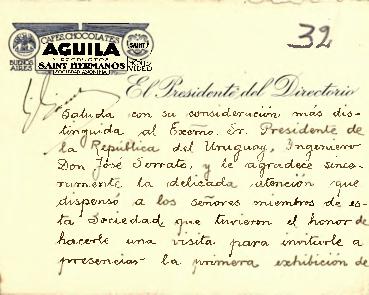 CAFES, CHOCOLATES
AGUILA
Y PRODUCTOS
SAINT HERMANOS
SOCIEDAD ANONIMA
BUENOS AIRES
SAINT
MONTEVIDEO
32
El Presidente del Directorio
Saluda con su consideración más dis-
tinguida al Excmo. Sr. Presidente de
la República del Uruguay, Ingeniero
Don José Serrato, y le agradece since-
ramente la delicada atención que
dispensó a los señores miembros de es-
ta Sociedad, que tuvieron el honor de
hacerle una visita para invitarle a
presenciar la primera exhibición de